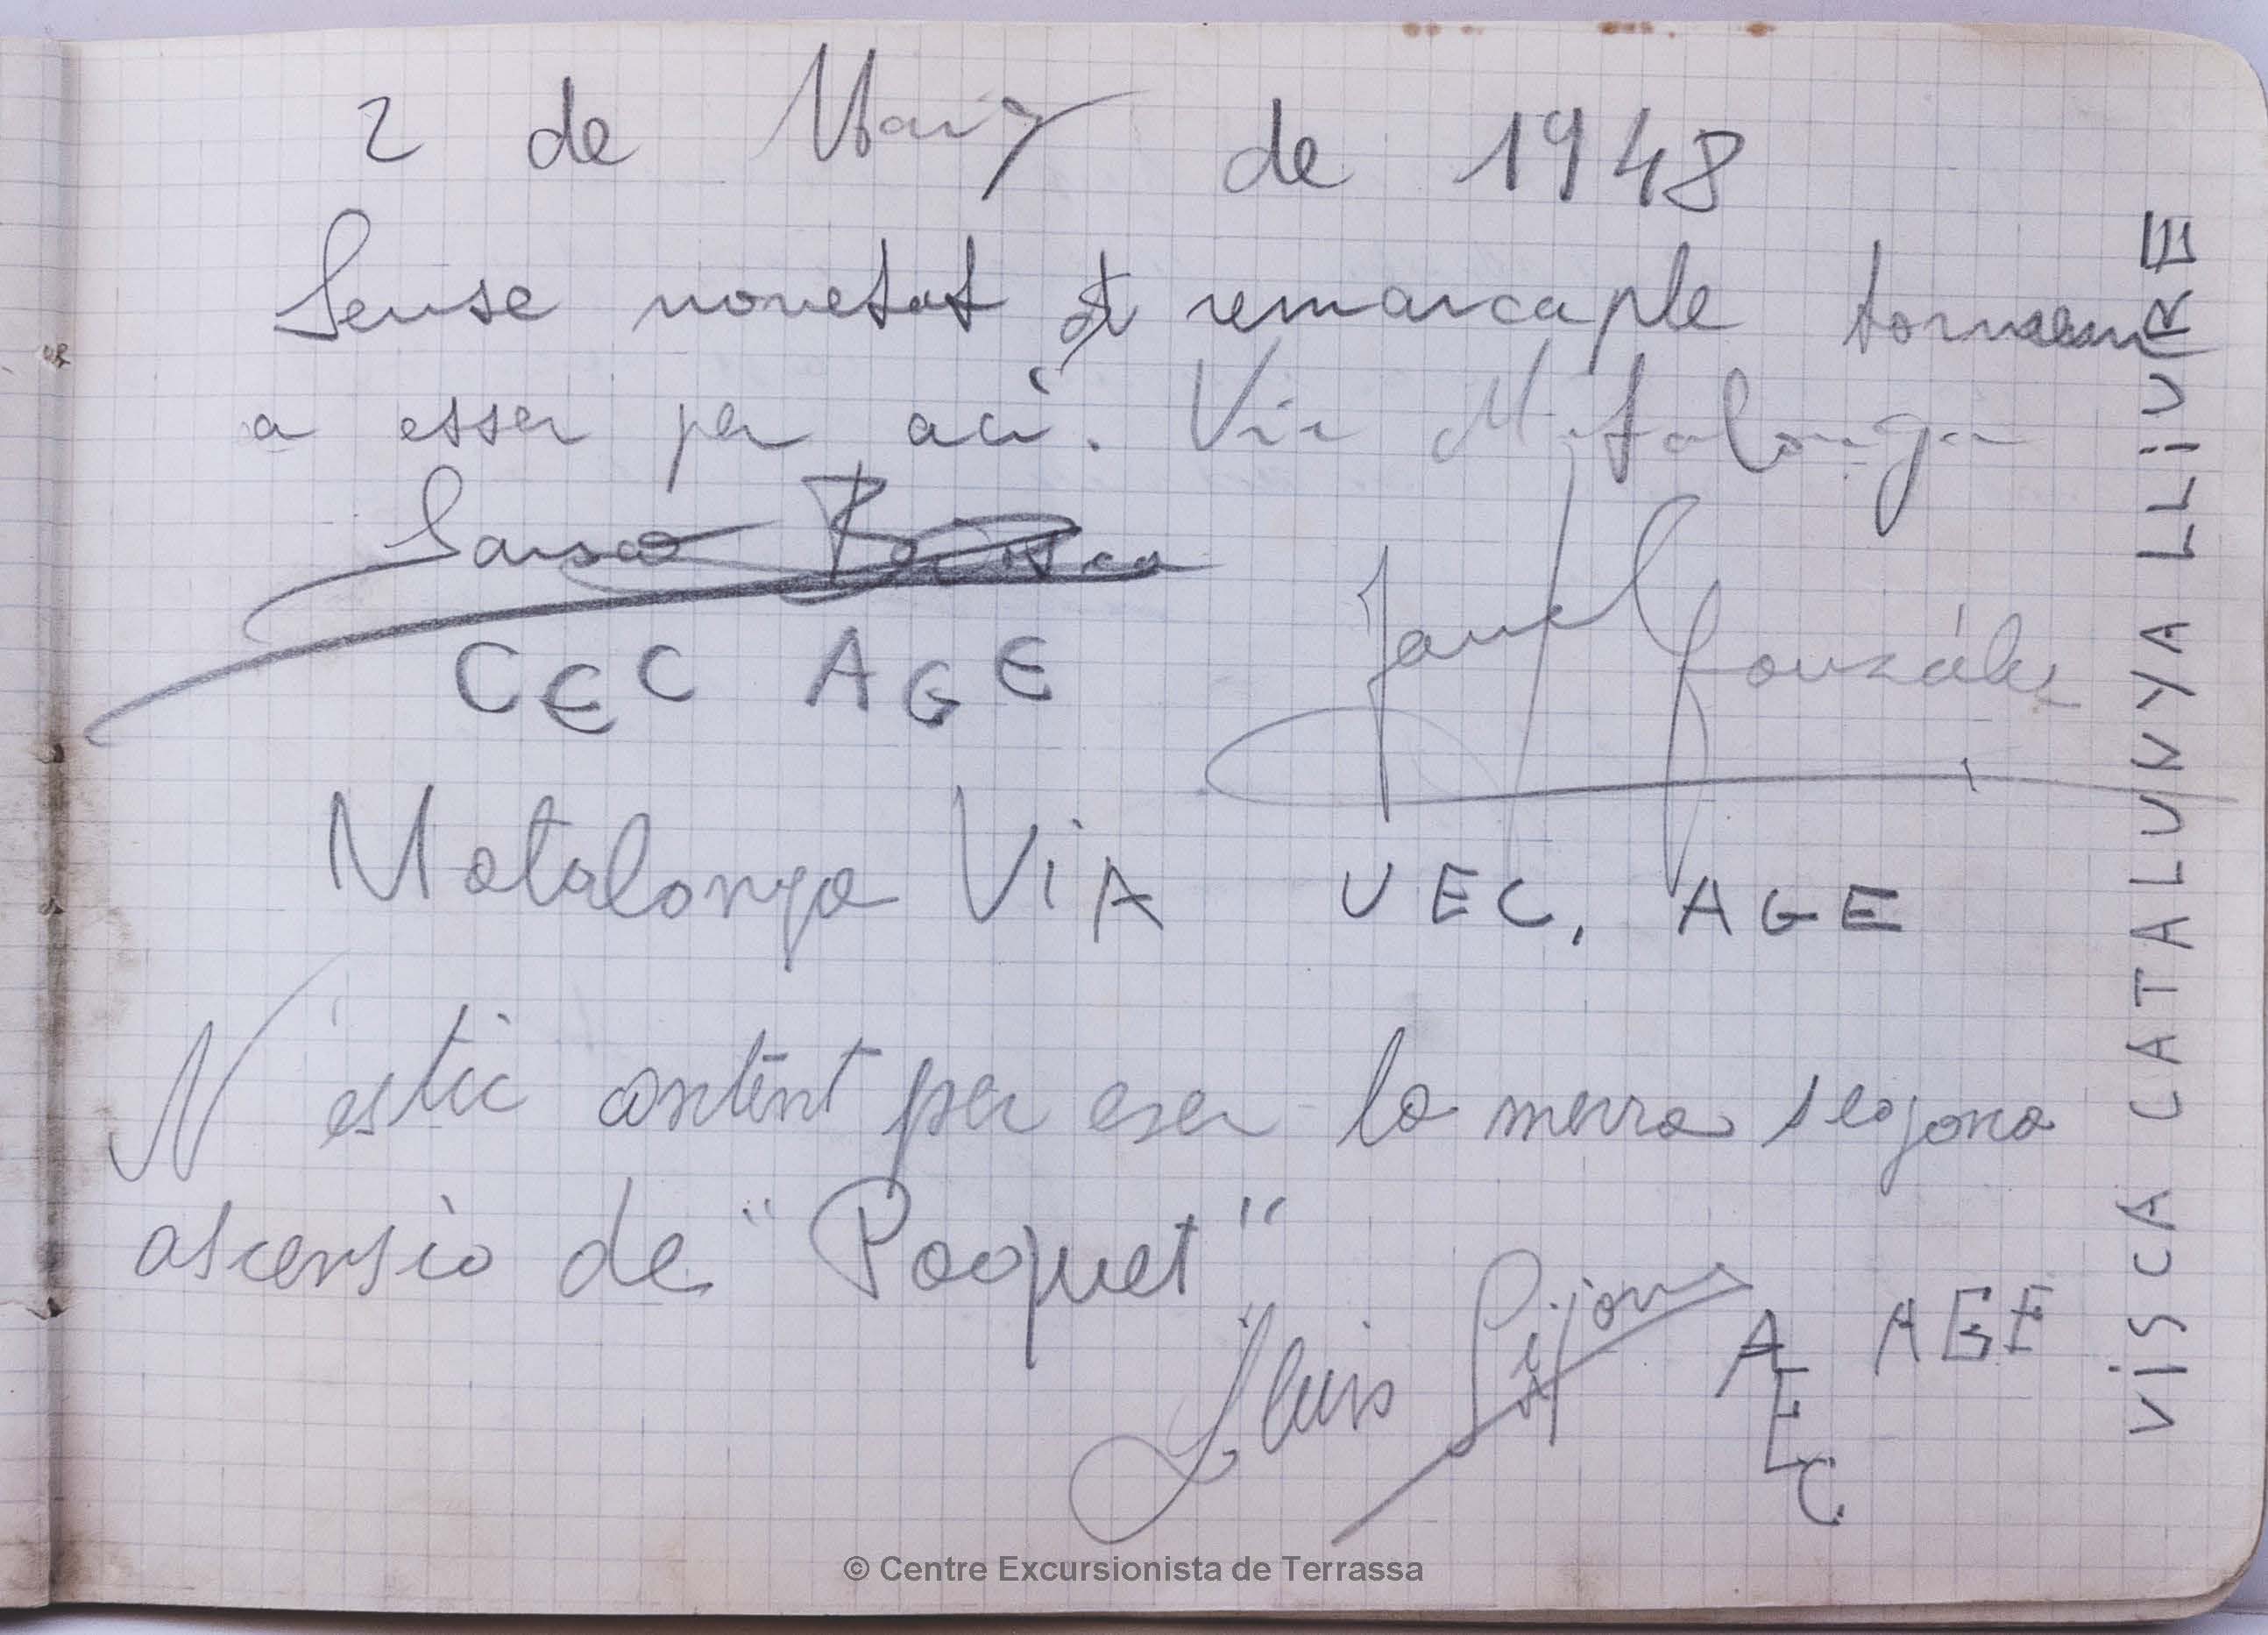 2 de Març de 1948
Sense novetat remarcaple tornem
a esser per ací. Via Matalonga
CEC AGE
Jaume González
Matalonga Via UEC, AGE
N'estic content per eser la meva segona
ascensio de "Paquet"
Lluis
AEC AGE
VISCA CATALUNYA LLIURE
© Centre Excursionista de Terrassa